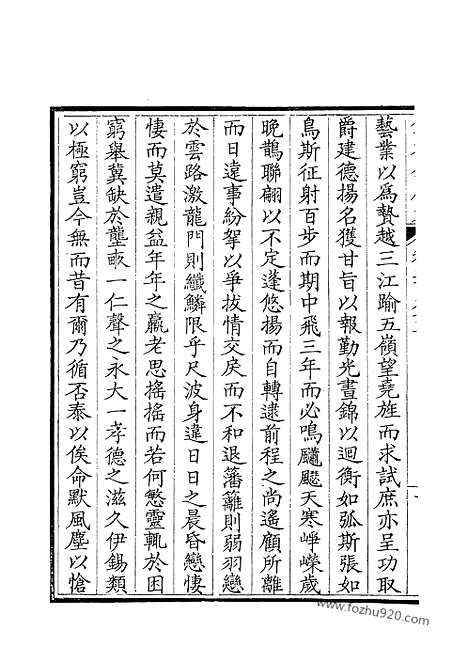 藝業以爲贄越三江踰五嶺望堯旌而求試庶亦呈功取
爵建德揚名獲甘旨以報勤光晝錦以迴衡如弧斯張如
鳥斯征射百步而期中飛三年而必鳴飀飀天寒崢嶸歲
晚鵲聯翩以不定蓬悠揚而自轉逮前程之尚遙顧所離
而日遠事紛挐以爭拔情交戾而不和退藩籬則弱羽戀
於雲路激龍門則纖鱗限乎尺波身違日日之晨昏戀悽
悽而莫遣親益年年之羸老思搖搖而若何慜靈輒於困
窮舉冀缺於壟畝一仁聲之永大一孝德之滋久伊錫類
以極窮豈今無而昔有爾乃循否泰以俟命默風塵以愴
www.fozhu920.com